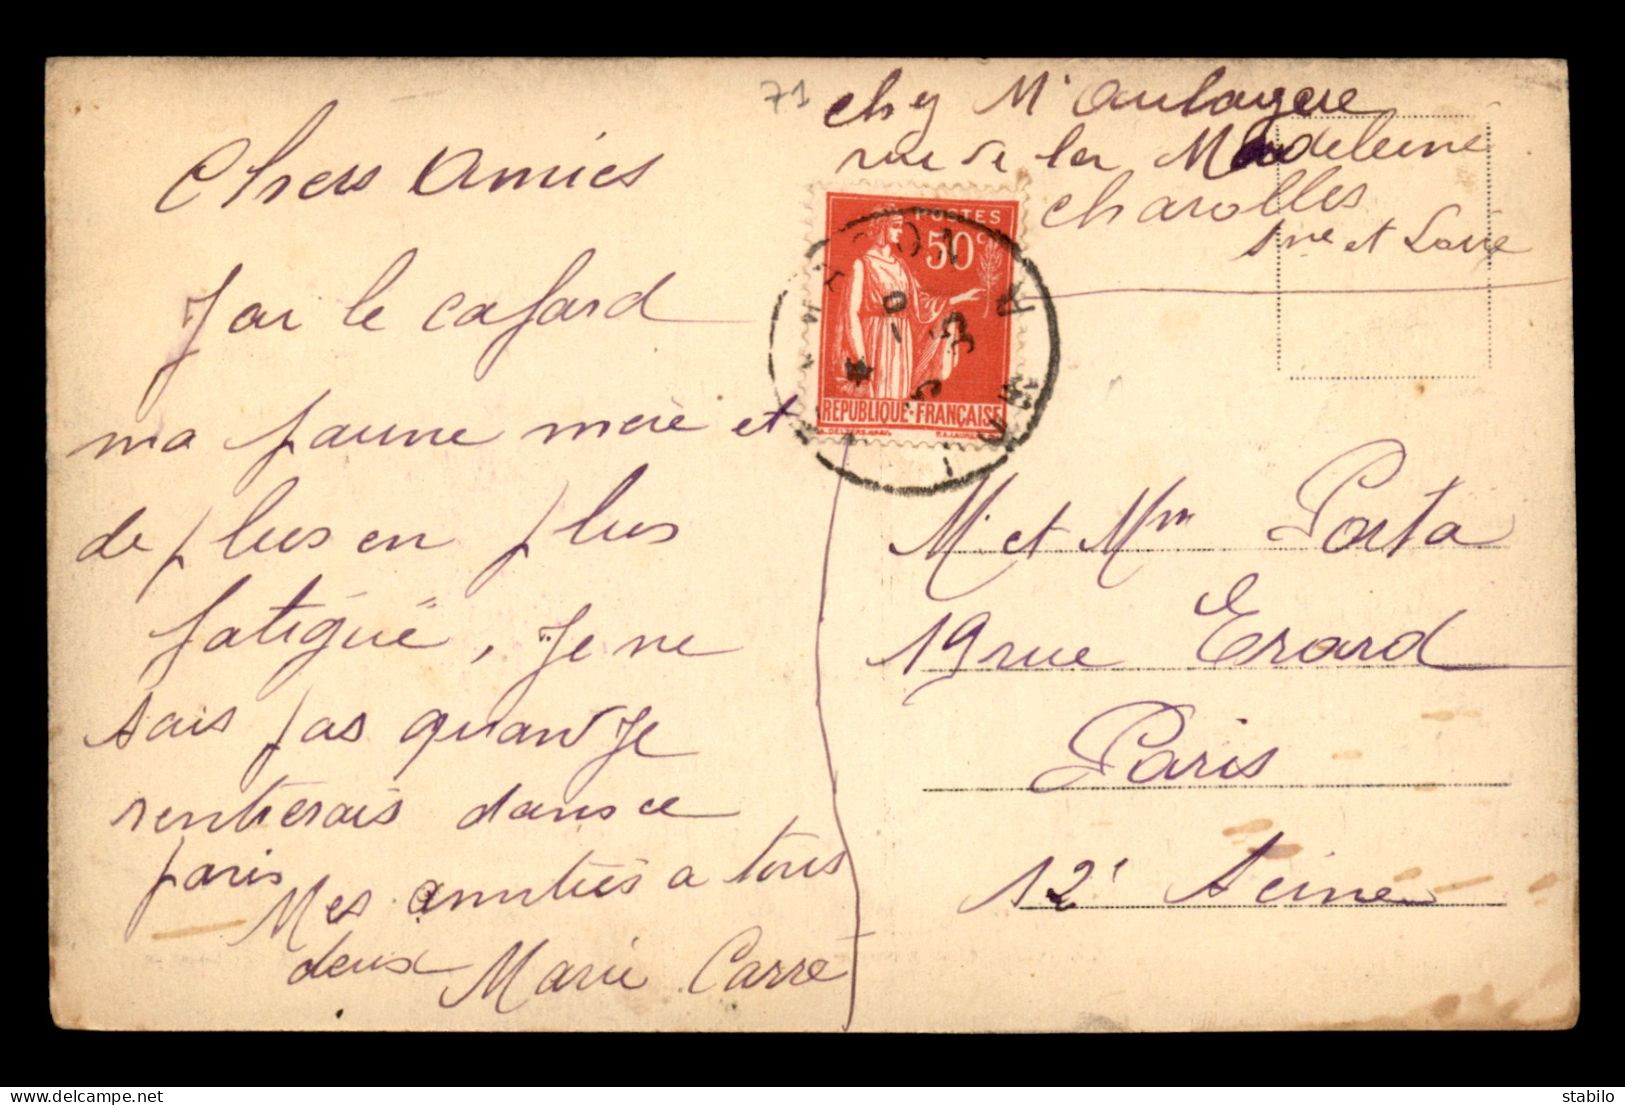 71
chez Mr Aulagere
rue de la Madeleine
Charolles
Sne et Loire
Chers Amies
J'ai le cafard
ma pauvre mère et
de plus en plus
fatiguée, Je ne
sais pas quand Je
rentrerais dans ce
paris
Mes amitiés a tous
deux Marie Carré
POSTES
50c
REPUBLIQUE-FRANÇAISE
M. et Mme Porta
19 rue Erard
Paris
12e Seine
stabilo